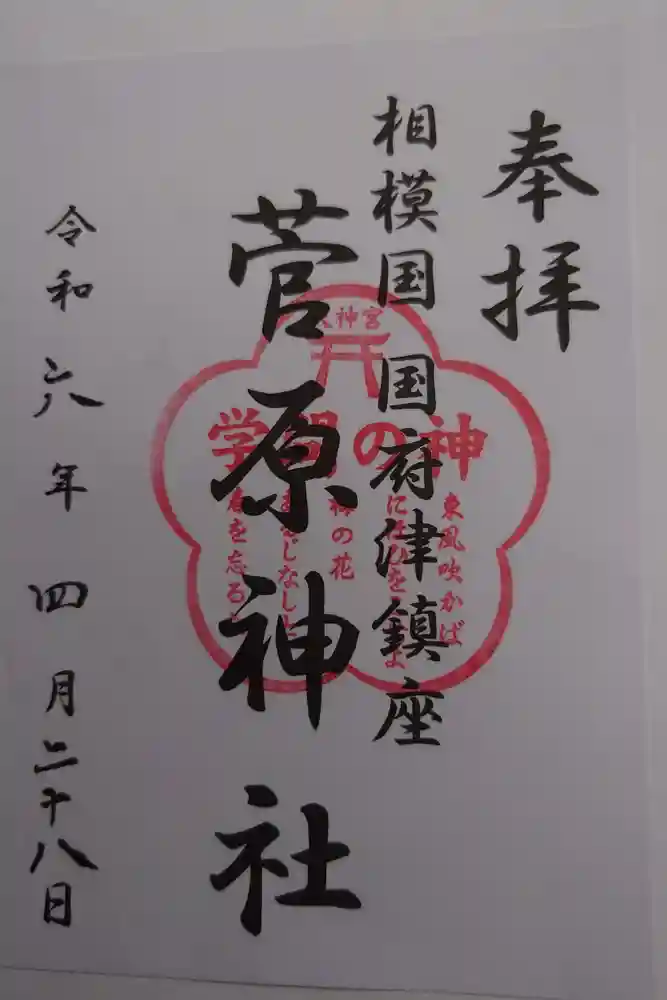 奉拝
相模国 国府津鎮座
菅原神社
令和六年四月二十八日
神宮
学問の神
東風吹かば
にほひをこせよ
梅の花
あるじなしと
春を忘る